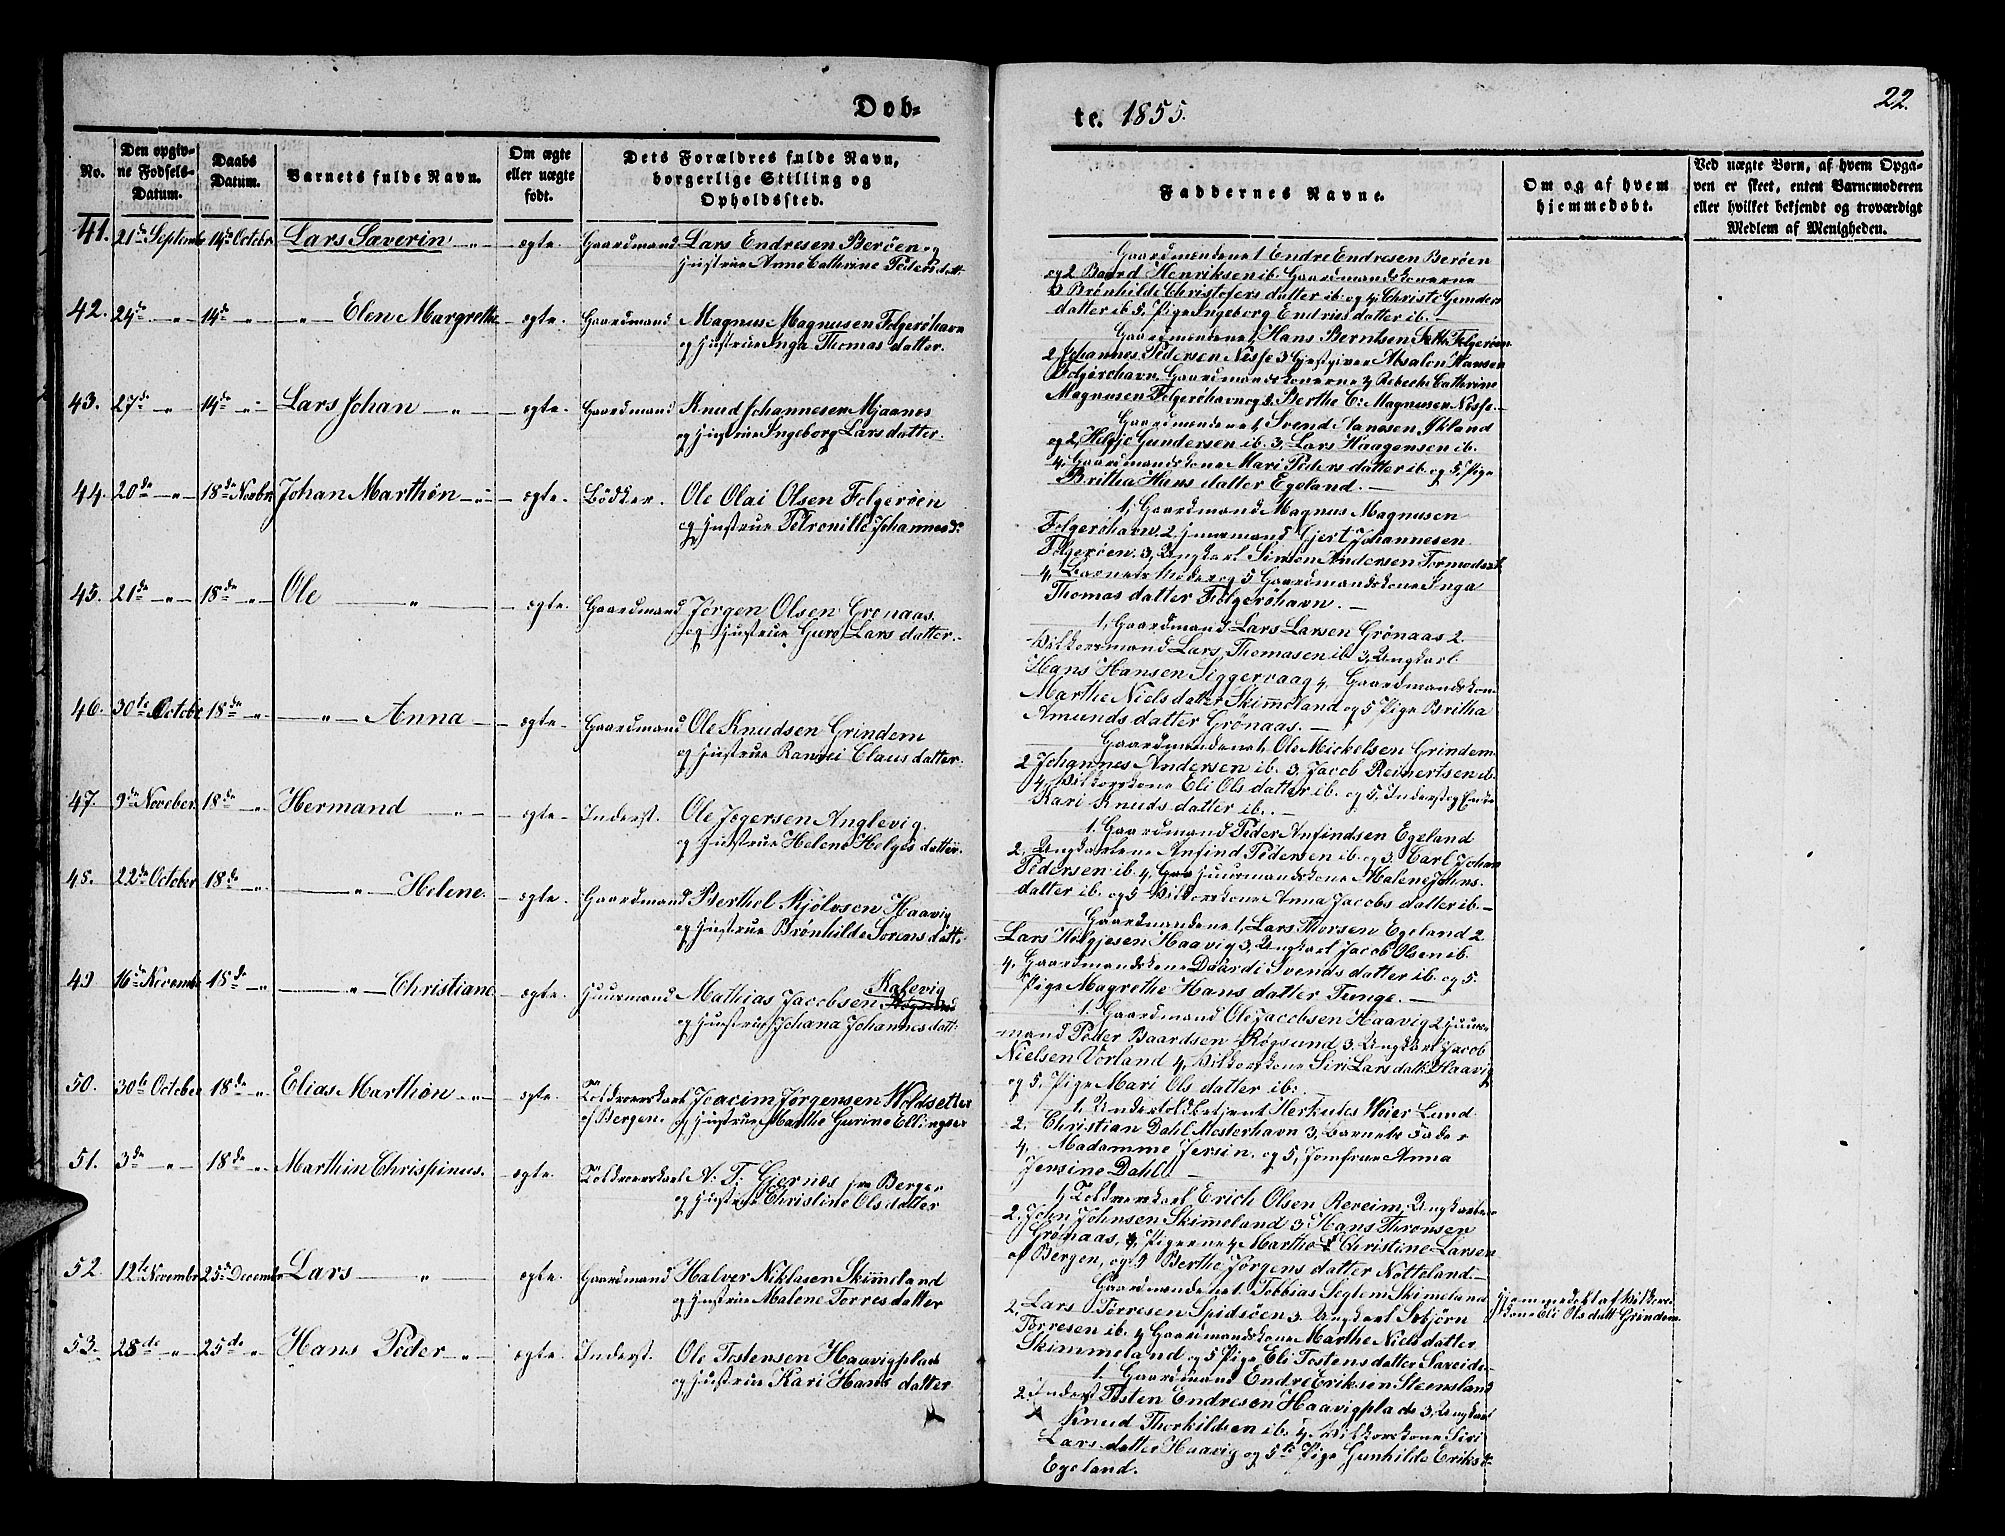 Døb-
No.
Den opgiv-
ne Fødsels-
Datum.
Daabs
Datum.
Barnets fulde Navn.
Om ægte
eller uægte
født.
Dets Forældres fulde Navn,
borgerlige Stilling og
Opholdssted.
41. 21de Septemb 14de Octobr Lars Saverin ægte Gaardmand Lars Endresen Berøen og
Hustrue Anne Cathrine Peders datt
42. 24de " 14de " Elen Margrethe ægte. Gaardmand Magnus Magnusen Folgerøhavn
og Hustrue Inga Thomas datter.
43. 27de " 14de " Lars Johan ægte. Gaardmand Knud Johannesen Mjaanes
og Hustrue Ingeborg Lars datter.
44. 20de " 18de Novbr Johan Marthon ægte. Bødker. Ole Olai Olsen Folgerøen
og Hustrue Petronille Johannesd.
45. 21de " 18de " Ole ægte. Gaardmand Jørgen Olsen Grønaas.
og Hustrue Guro Lars datter.
46. 30te Octobr 18de " Anna ægte. Gaardmand Ole Knudsen Grindem
og Hustrue Rannei Claus datter.
47. 9de Noveber 18de " Hermand ægte Inderst. Ole Jogersen Anglevig
og Hustrue Helene Helges datter.
48. 22de October 18de " Helene. ægte. Gaardmand Berthel Mjølvsen Haavig
og Hustrue Brønhilde Sorens datt.
49 16de Novemb 18de " Christiane ægte. Huurmand Mathias Jacobsen Kalevig
og Hustrue Johana Johannes datt.
50. 30te October 18de " Elias Marthon ægte. Toldroerskarl Joacim Jørgensen Woldsetter
af Bergen. og Hustrue Marthe Gurine Ellingsen
51. 3de " 18de " Marthin Chrispinus. ægte. Toldroerskarl N: T: Gjernes fra Bergen
og Hustrue Christine Ols datter
52. 12te Novembr 25de Decembr Lars ægte. Gaardmand Halver Niklasen Skimmeland
og Hustrue Malene Torres datter
53. 28de " 25de " Hans Peder ægte Inderst. Ole Tostensen Haavigplads
og Hustrue Kari Hans datter
te. 1855.
22.
Faddernes Navne.
Om og af hvem
hjemmedøbt.
Ved uægte Børn, af hvem Opga-
ven er skeet, enten Barnemoderen
eller hvilket bekjendt og troværdigt
Medlem af Menigheden.
Gaardmændene 1 Endre Endresen Berøen
og 2 Baard Henriksen ib. Gaardmandskonerne
3 Brønhilde Christofers datter ib. og 4, Christi Gunders
datter ib 5. Pige Ingeborg Endries datter ib.
Gaardmændene 1, Hans Berntsen Folgerøen
2 Johannes Pedersen Nesse 3 Gjestgiver Absalon Hansen
Folgerøhavn. Gaardmandskonerne 4 Rebecke Cathrine
Magnusen Folgerøhavn og 5. Berthe C: Magnusen Nesse.
Gaardmændene 1. Svend Nanesen Økland
og 2, Helge Gundersen ib. 3, Lars Haagensen ib.
4, Gaardmandskone Mari Peders datter ib. og 5, Pige
Britha Hans datter Egeland.
1, Gaardmand Magnus Magnusen
Folgerøhavn. 2 Huurmand Gjert Johannesen
Folgerøen. 3, Ungkarl Simon Andersen
4, Barnets Moder og 5 Gaardmandskone Inga
Thomas datter Folgerøhavn.
1, Gaardmand Lars Larsen Grønaas 2.
Vilkorsmand Lars Thomasen ib 3, Ungkarl
Hans Hansen Siggervaag 4, Gaardmandskon
Marthe Niels datter Skimmeland og 5 Pige Britha
Amunds datter Grønaas.
Gaardmændene 1, Ole Mickelsen Grindem
2 Johannes Andersen ib. 3, Jacob Reinertsen ib.
4, Vilkorskone Eli Ols datter ib. og 5, Inderst og Enke
Kari Knuds datter ib.
1. Gaardmand Peder Anfindsen Egeland
2, Ungkarlene Anfind Pedersen ib. og 3, Carl Johan
Pedersen ib. 4, Huurmandskone Malene Johns.
datter ib. og 5 Vilkorskone Anna Jacobs datter ib.
Gaardmændene 1, Lars Thorsen Egeland 2.
Lars Helgjesen Haavig 3, Ungkarl Jacob Olsen ib.
4, Gaardmandskone Daardi Svends datter ib. og 5.
Pige Magrethe Hans datter Tunge.
1. Gaardmand Ole Jacobsen Haavig 2 Huur-
mand Peder Baardsen Røgsund 3. Ungkarl Jacob
Nielsen Vorland 4, Vilkorskone Siri Lars datt. Haavig
og 5, Pige Mari Ols datter ib.
1, Undertoldbetjent Herkules Weier Lund
2. Christian Dahl Mosterhavn 3, Barnets Fader
4, Madamme Jersin. og 5, Jomfrue Anna
Jensine Dahl.
1, Toldroerskarl Erich Olsen Rereim, Ungkarlene
2. John Johnsen Skimeland 3 Hans Thronsen
Grønaas, Pigerne 4 Marthe Christine Larsen
af Bergen, og 5 Berthe Jørgens datter Notteland.
Gaardmændene 1. Tobbias Seglen Skimeland
2. Lars Torresen Spidsøen 3. Ungkarl Asbjørn
Torresen ib. 4 Gaardmandskone Marthe Niels datter
Skimmeland og 5 Pige Eli Tostens datter Sareide
Hjemmedøbt af Vilkors
kone Eli Ols datt Grindem
1. Gaardmand Endre Eriksen Steensland
2. Inderst Tosten Endresen Haavigplads 3, Ungkarl
Knud Thorkildsen ib. 4, Vilkorskone Siri
Lars datter Haavig og 5te Pige Gunhilde Eriks d.
Egeland.